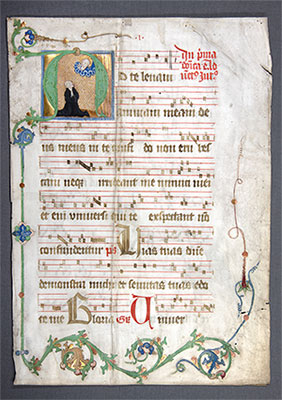 Ad te leuaui
animam meam de
us meus in te confi do non erubes
cam neq irrideant me inimici mei
et eni uniuersi qui te expectant no
confundentur ps Vias tuas dne
demonstra michi et semitas tuas edo
ce me Gloria Gr Uniuer